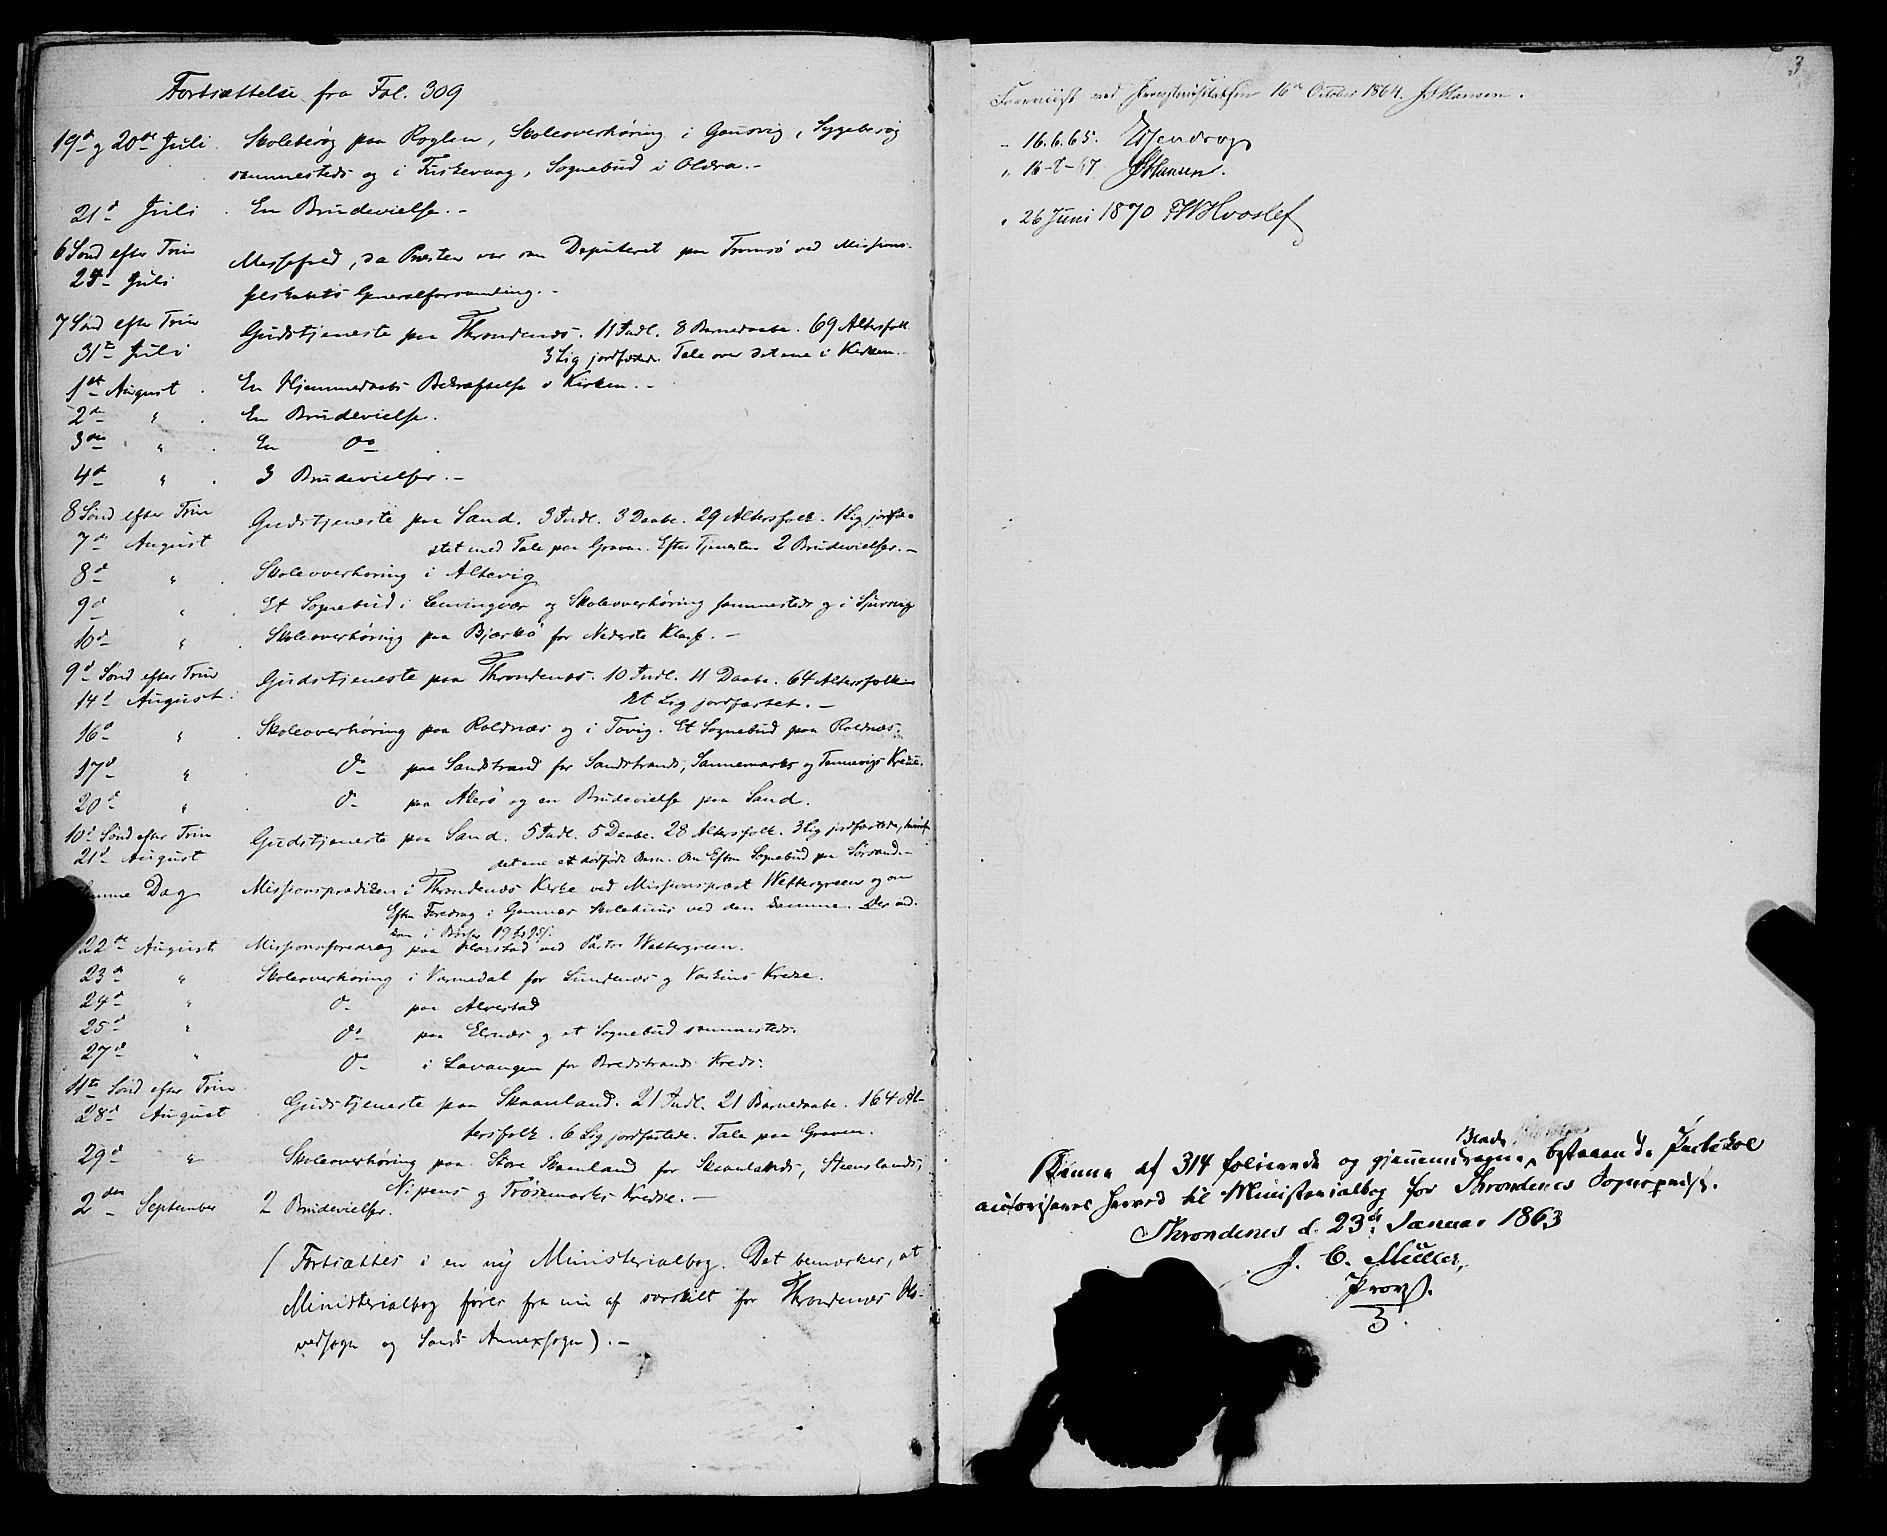 Fortsættelse fra Fol. 309
19de og 20de Juli. Skolebesøg paa Roglen, Skoleoverhøring i Gausvig, Sygebesøg
sammesteds og i Fuskevaag, Sognebud i Oldra.-
21de Juli. En Brudevielse.-
6 Sønd efter Trin Messefald, da Præsten var som Deputeret paa Tromsø ved Missions-
24de Juli selskabets Generalforsamling.-
7 Sønd efter Trin Gudstjeneste paa Throndenæs. 11 Indl. 8 Barnedaabe. 69 Altersfolk
31te Juli 3 Lig jordfæstede. Tale over det ene i Kirken.-
1ste August. En Hjemmedaabs Bekræftelse i Kirken.-
2de " . En Brudevielse.
3die " . En Do
4de " . 3 Brudevielser.-
8 Sønd efter Trin Gudstjeneste paa Sand. 3 Indl. 3 Daabe. 29 Altersfolk. 1 Lig jordfæ-
7de August stet med Tale paa Graven. Efter Tjenesten 2 Brudevielser.-
8de " . Skoleoverhøring i Altevig
9de " . Et Sognebud i Lemingvær og Skoleoverhøring sammesteds og i
10de " . Skoleoverhøring paa Bjarkø for Nederste Klasse.-
9de Sønd efter Trin Gudstjeneste paa Throndenæs. 10 Indl. 11 Daabe. 64 Altersfolk
14de August. Et Lig jordfæstet.-
16de " . Skoleoverhøring paa Roldnæs og i Tovig. Et Sognebud paa Roldnæs.
17de " . Do paa Sandstrand for Sandstrands, Sannemarks og Tennevigs Kredse.
20de " Do paa Akerø og en Brudevielse paa Sand.
10de Sønd efter Trin Gudstjeneste paa Sand. 5 Indl. 5 Daabe. 28 Altersfolk. 3 Lig jordfæstede,
21de August det ene et dødfødt Barn. Om Eftm Sognebud paa Sørsand.-
Samme Dag Missionsprædiken i Throndenæs Kirke ved Missionspræst Wettergreen og om
Eftm Foredrag i Gannes Skolehuus ved den Samme. Der ud-
kom i Bøsser
22de August Missionsforedrag paa Harstad ved Pastor Wettergreen.
23de " Skoleoverhøring i Varmedal for Sundenæs og Kredse.
24de " Do paa Alvestad
25de " Do paa Elnæs og et Sognebud sammesteds.
27de " Do i Lavangen for Bredstrands Kreds.
11te Sønd efter Trin.
28de August. Gudstjeneste paa Skaanland. 21 Indl. 21 Barnedaabe. 164 Al-
tersfolk. 6 Lig jordfæstede. Tale paa Graven.
29de " Skoleoverhøring paa Store Skaanland for Skaanlands, Steenlands,
Nipens og Trøsemarks Kredse.-
2den September 2 Brudevielser.
(Fortsættes i en ny Ministerialbog. Det bemærkes, at
Ministerialbog føres fra nu af særskilt for Throndenæs Ho-
vedsogn og Sands Annexsogn).-
3
Foreviist ved Provstevisitatsen 16de October 1864. J Hansen.
- 16.6.65.
" 16-8-67. Hansen.
" 26 Juni 1870 FWHvoslef
Denne af 314 folierede og gjennemdragne Blade bestaaende Protokol
autoriseres herved til Ministerialbog for Throndenes Sognepræst.
Throndenes d. 23de Januar 1863
J. C. Müller,
Provst.